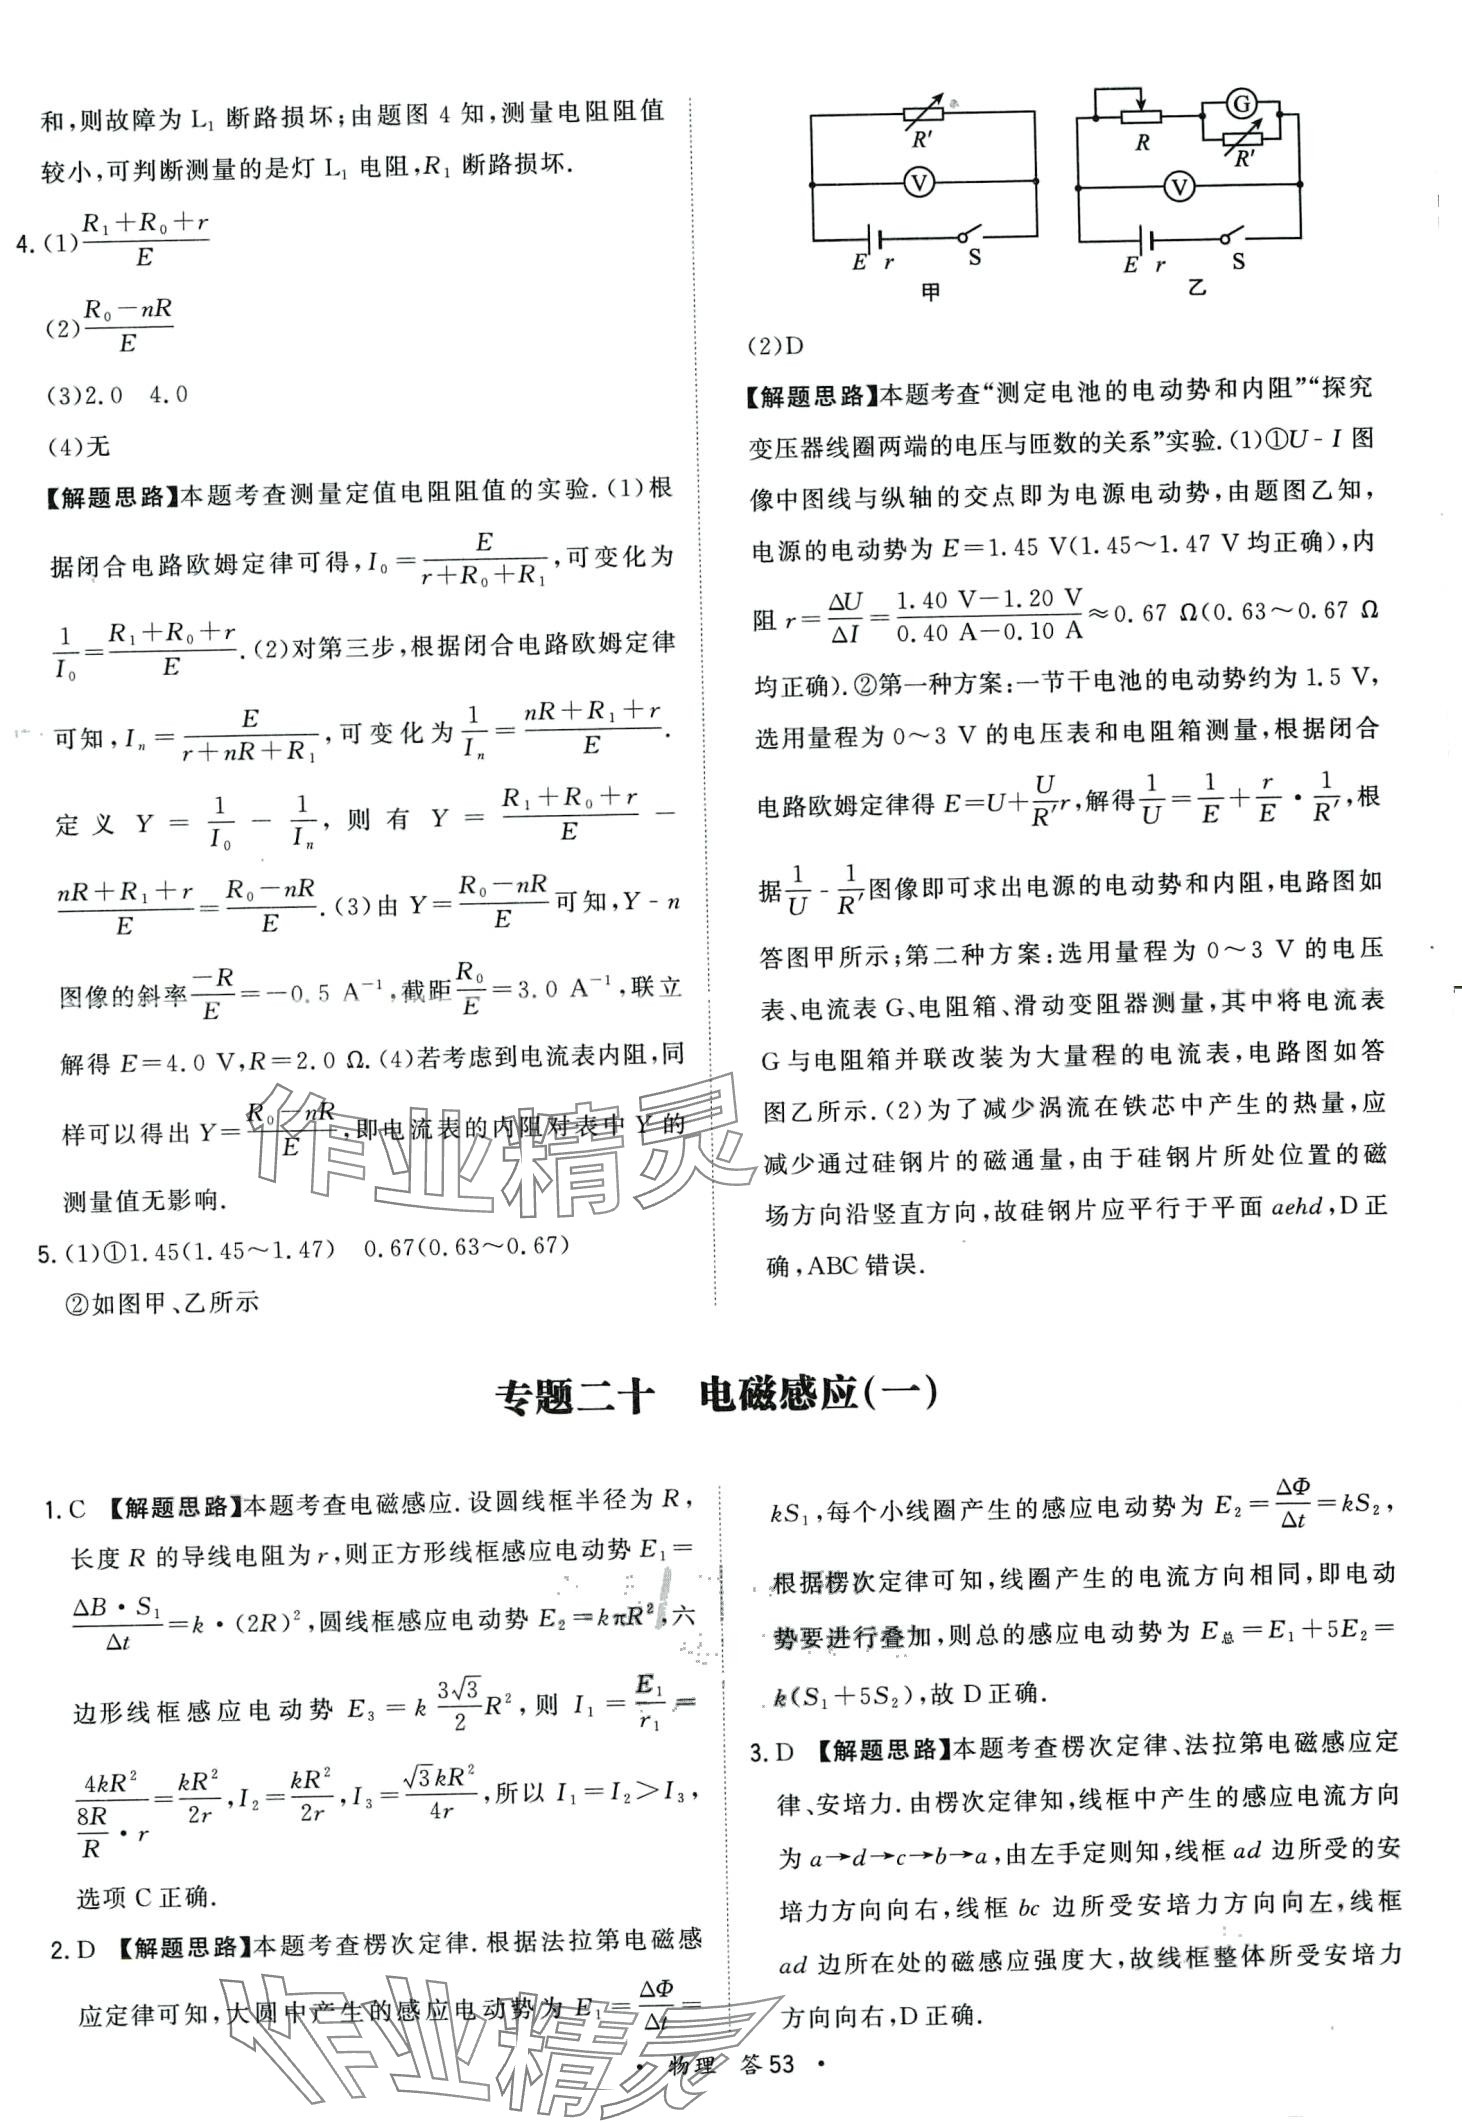 和,则故障为 L₁ 断路损坏;由题图 4 知,测量电阻阻值
较小,可判断测量的是灯 L₁ 电阻,R₁ 断路损坏.
4.(1)(R₁+R₀+r)/E
(2)(R₀-nR)/E
(3)2.0 4.0
(4)无
【解题思路】本题考查测量定值电阻阻值的实验.(1)根
据闭合电路欧姆定律可得,I₀=E/(r+R₀+R₁),可变化为
1/I₀=(R₁+R₀+r)/E.(2)对第三步,根据闭合电路欧姆定律
可知,Iₙ=E/(r+nR+R₁),可变化为1/Iₙ=(nR+R₁+r)/E.
定义 Y=1/I₀-1/Iₙ,则有 Y=(R₁+R₀+r)/E-
(nR+R₁+r)/E=(R₀-nR)/E.(3)由 Y=(R₀-nR)/E可知,Y-n
图像的斜率-R/E=-0.5 A⁻¹,截距R₀/E=3.0 A⁻¹,联立
解得 E=4.0 V,R=2.0 Ω.(4)若考虑到电流表内阻,同
样可以得出 Y=(R₀-nR)/E,即电流表的内阻对表中 Y 的
测量值无影响.
5.(1)①1.45(1.45～1.47) 0.67(0.63～0.67)
②如图甲、乙所示
R′
V
E r S
甲
G
R R′
V
E r S
乙
(2)D
【解题思路】本题考查“测定电池的电动势和内阻”“探究
变压器线圈两端的电压与匝数的关系”实验.(1)①U-I 图
像中图线与纵轴的交点即为电源电动势,由题图乙知,
电源的电动势为 E=1.45 V(1.45～1.47 V 均正确),内
阻 r=ΔU/ΔI=(1.40 V-1.20 V)/(0.40 A-0.10 A)≈0.67 Ω(0.63～0.67 Ω
均正确).②第一种方案:一节干电池的电动势约为 1.5 V,
选用量程为 0～3 V 的电压表和电阻箱测量,根据闭合
电路欧姆定律得 E=U+(U/R′)r,解得1/U=1/E+r/E·1/R′,根
据1/U-1/R′图像即可求出电源的电动势和内阻,电路图如
答图甲所示;第二种方案:选用量程为 0～3 V 的电压
表、电流表 G、电阻箱、滑动变阻器测量,其中将电流表
G 与电阻箱并联改装为大量程的电流表,电路图如答
图乙所示.(2)为了减少涡流在铁芯中产生的热量,应
减少通过硅钢片的磁通量,由于硅钢片所处位置的磁
场方向沿竖直方向,故硅钢片应平行于平面 aehd,D 正
确,ABC 错误.
专题二十 电磁感应(一)
1. C 【解题思路】本题考查电磁感应.设圆线框半径为 R,
长度 R 的导线电阻为 r,则正方形线框感应电动势 E₁=
ΔB·S₁/Δt=k·(2R)²,圆线框感应电动势 E₂=kπR²,六
边形线框感应电动势 E₃=k(3√3/2)R²,则 I₁=E₁/r₁=
4kR²/((8R/R)·r)=kR²/2r,I₂=kR²/2r,I₃=√3kR²/4r,所以 I₁=I₂>I₃,
选项 C 正确.
2. D 【解题思路】本题考查楞次定律.根据法拉第电磁感
应定律可知,大圆中产生的感应电动势为 E₁=ΔΦ/Δt=
kS₁,每个小线圈产生的感应电动势为 E₂=ΔΦ/Δt=kS₂,
根据楞次定律可知,线圈产生的电流方向相同,即电动
势要进行叠加,则总的感应电动势为 E总=E₁+5E₂=
k(S₁+5S₂),故 D 正确.
3. D 【解题思路】本题考查楞次定律、法拉第电磁感应定
律、安培力.由楞次定律知,线框中产生的感应电流方向
为 a→d→c→b→a,由左手定则知,线框 ad 边所受的安
培力方向向右,线框 bc 边所受安培力方向向左,线框
ad 边所在处的磁感应强度大,故线框整体所受安培力
方向向右,D 正确.
作业精灵
作业精灵
· 物理 答 53 ·